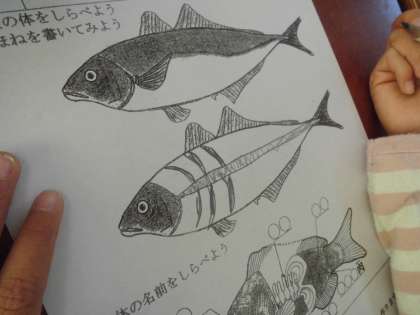 の体をしらべよう
まねを書いてみよう
体の名前をしらべよう